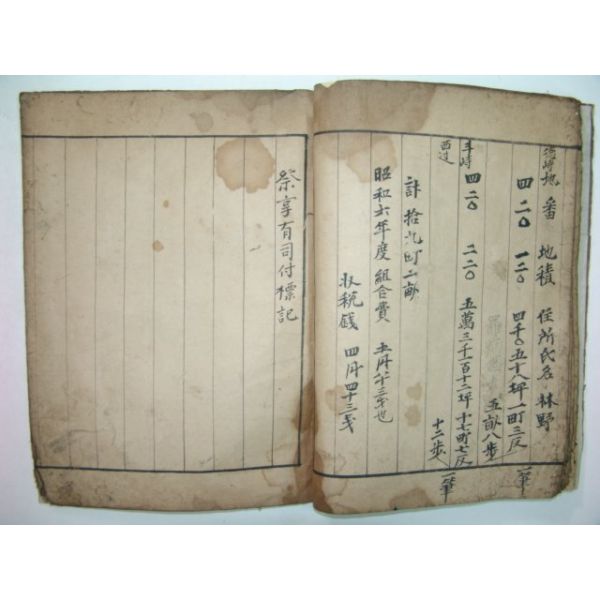 地番 地積 住所氏名 林野
四二〇 一二〇 四千〇五十八坪一町三反
五畝八歩 一筆
四二〇 二二〇 五萬三千一百十二坪十七町七反
十二歩 一筆
計 拾九町二畝
昭和六年度 組合費 五円八十三戔也
収税戔 四円四十三戔
祭享有司付標記